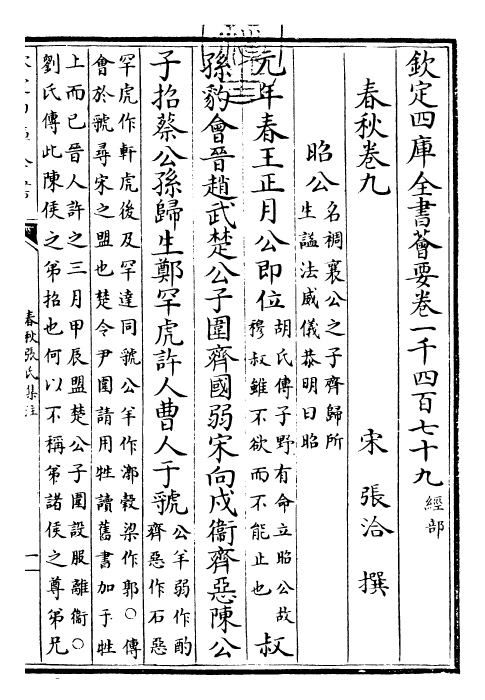 欽定四庫全書薈要卷一千四百七十九 經部
春秋卷九
宋 張洽 撰
昭公 名裯襄公之子齊歸所
生諡法威儀恭明曰昭
元年春王正月公即位 胡氏傳子野有命立昭公故
穆叔雖不欲而不能止也 叔
孫豹會晉趙武楚公子圍齊國弱宋向戌衛齊惡陳公
子招蔡公孫歸生鄭罕虎許人曹人于虢 公羊弱作酌
齊惡作石惡
罕虎作軒虎後及罕達同虢公羊作漷穀梁作郭○傳
會於虢尋宋之盟也楚令尹圍請用牲讀舊書加于牲
上而已晉人許之三月甲辰盟楚公子圍設服離衛○
劉氏傳此陳侯之弟招也何以不稱弟諸侯之尊弟兄
春秋張氏集注
一